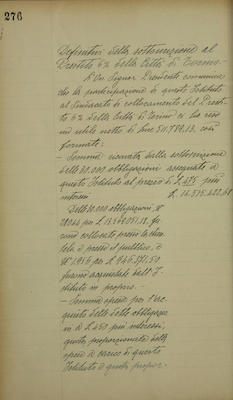 276
Definitiva della sottoscrizione al
Prestito 6% della Città di Torino.
Il Sig. Signor Presidente comunica
che la partecipazione di questo Istituto
al Sindacato di collocamento del Prestito
6% della Città di Torino ci ha reso
un utile netto di lire 511.789,13. così
formato:
- Somma ricavata dalla sottoscrizione
delle 30.000 obbligazioni assegnate a
questo Istituto al prezzo di L. 475 più
interessi L. 14.575.422,68
Delle 30.000 obbligazioni, N°
28044 per L. 13.
furono collocate presso la clientela
e presso il pubblico, e
N° 1956 per L. 946.371,50
furono acquistate dall'Istituto
in proprio. -
- Somma spesa per l'acquisto
delle dette obbligazioni
a L. 450 più interessi,
quota proporzionata delle
spese a carico di questo
Istituto e quota propor-